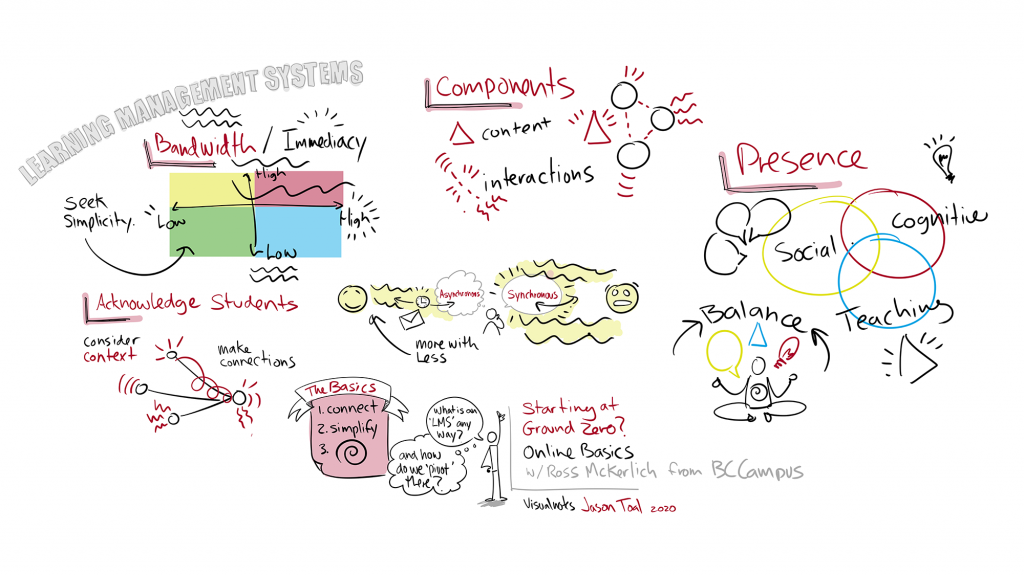 LEARNING MANAGEMENT SYSTEMS
Bandwidth / Immediacy
High
Low
High
Low
Seek
Simplicity.
Components
content
interactions
Presence
Social
Cognitive
Teaching
Balance
Acknowledge Students
consider
context
make
connections
Asynchronous
Synchronous
more with
Less
The Basics
1. connect
2. simplify
3.
what is an
'LMS' any
way?
and how
do we 'pivot'
there?
Starting at
Ground Zero?
Online Basics
w/Ross McKerlich from BCCampus
Visualnotes Jason Toal 2020